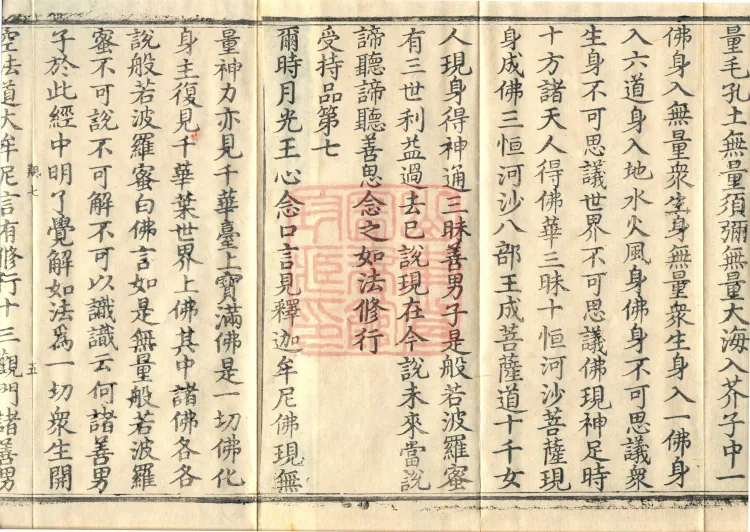 量毛孔土無量須彌無量大海入芥子中一
佛身入無量衆生身無量衆生身入一佛身
入六道身入地水火風身佛身不可思議衆
生身不可思議世界不可思議佛現神足時
十方諸天人得佛華三昧十恒河沙菩薩現
身成佛三恒河沙八部王成菩薩道十千女
人現身得神通三昧善男子是般若波羅蜜
有三世利益過去已說現在今說未來當說
諦聽諦聽善思念之如法修行
受持品第七
爾時月光王心念口言見釋迦牟尼佛現無
量神力亦見千華臺上寶滿佛是一切佛化
身主復見千華葉世界上佛其中諸佛各各
說般若波羅蜜白佛言如是無量般若波羅
蜜不可說不可解不可以識識云何諸善男
子於此經中明了覺解如法爲一切衆生開
觀七
五
空法道大牟尼言有修行十三觀門諸善男